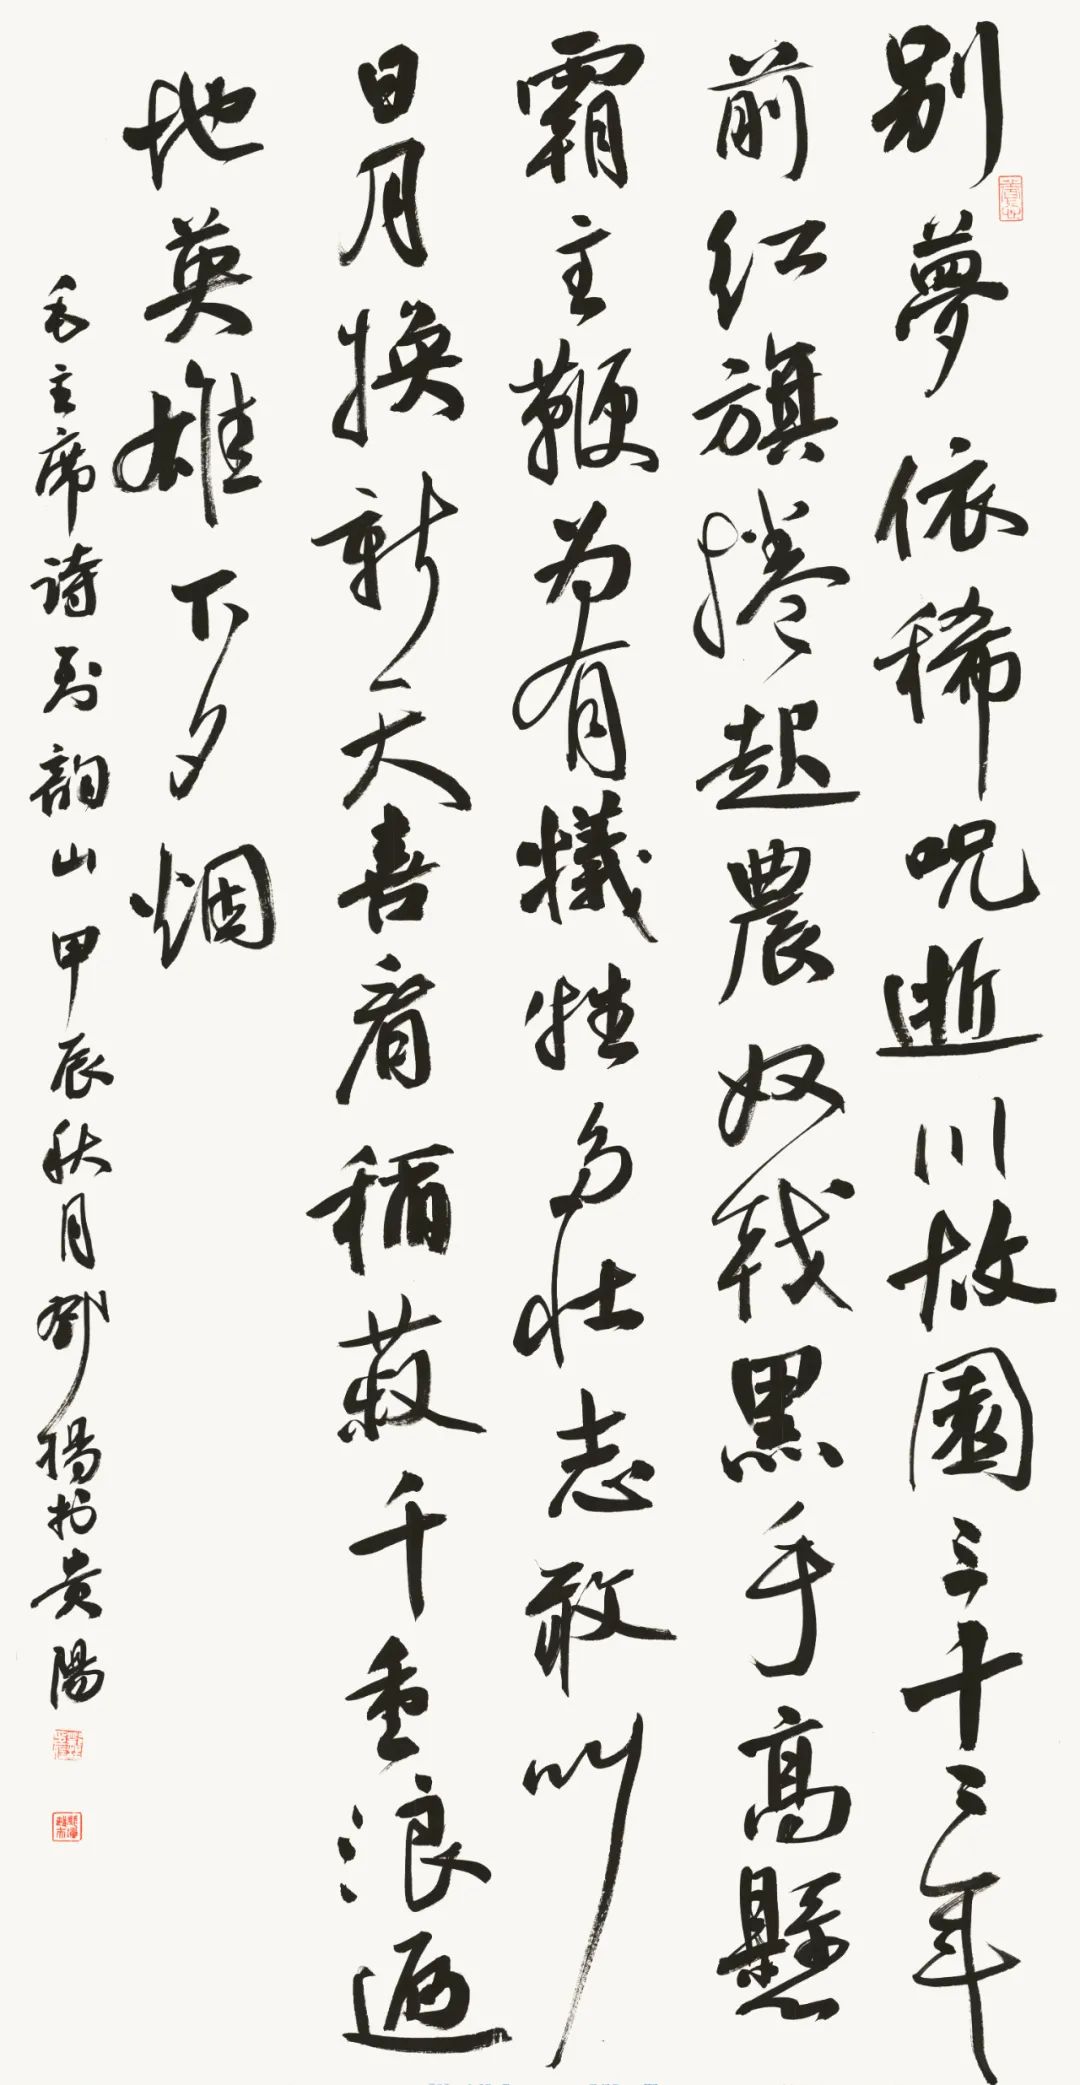 别夢依稀呪逝川故園三十二年
前红旗捲起農奴戟黑手高懸
霸主鞭为有犧牲多壮志敢叫
日月换新天喜看稻菽千重浪遍
地英雄下夕烟
毛主席诗到韶山甲辰秋月劉楊於贵陽